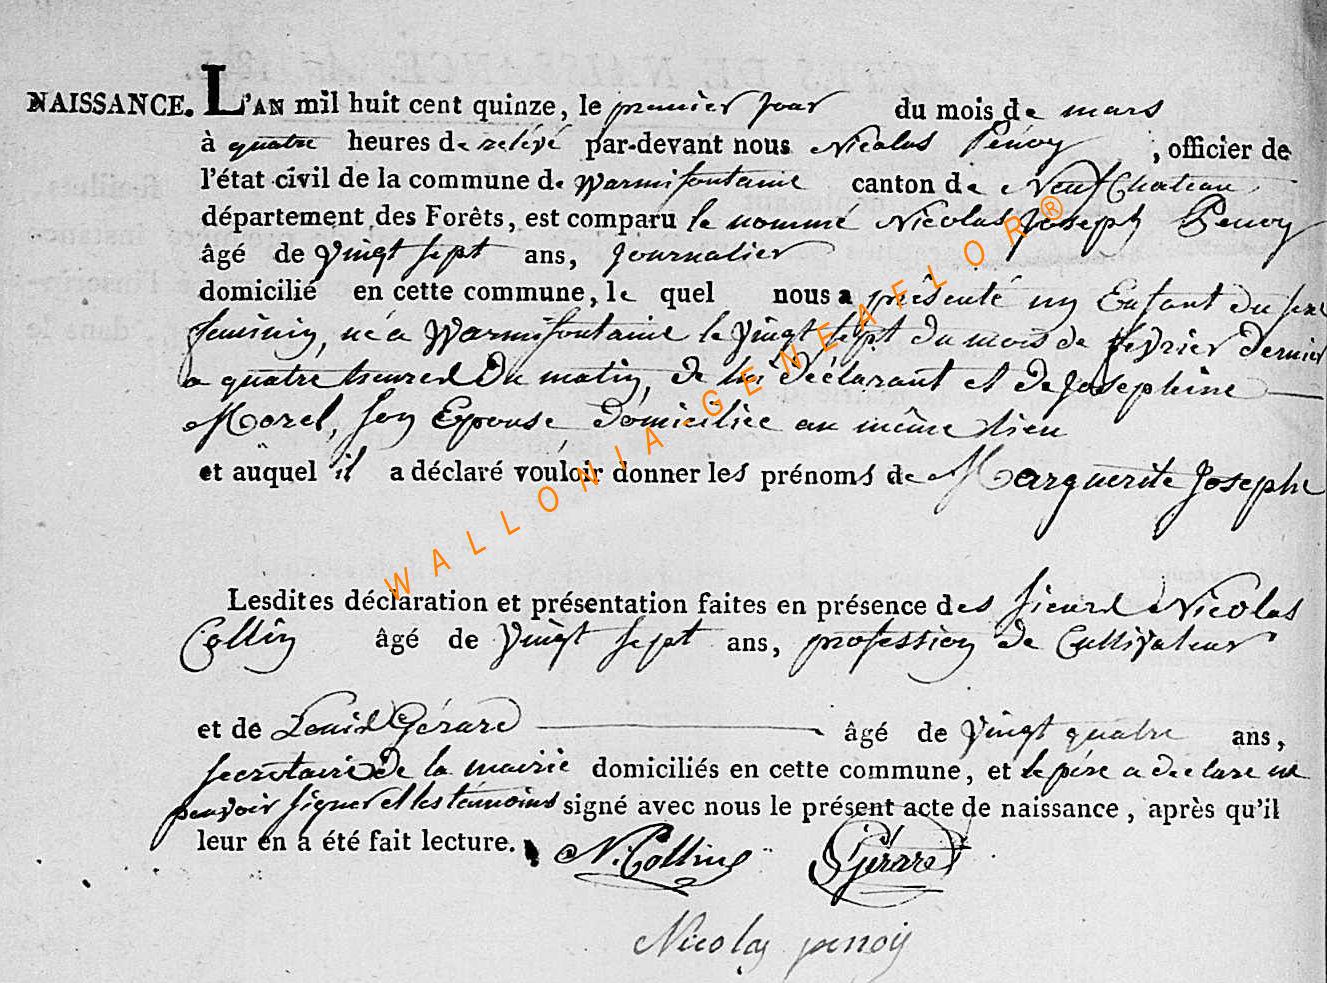 NAISSANCE. L'AN mil huit cent quinze, le premier jour du mois de mars
à quatre heures de relevé par-devant nous Nicolas Penoy, officier de
l'état civil de la commune de Warmifontaine canton de NeufChateau
département des Forêts, est comparu le nommé Nicolas Joseph Penoy
âgé de vingt sept ans, journalier
domicilié en cette commune, le quel nous a présenté un Enfant du sexe
feminin, né a Warmifontaine le vingt sept du mois de fevrier dernier
a quatre heures du matin, de lui déclarant et de Josephine
Morel, son Epouse Domiciliée au même lieu
et auquel il a déclaré vouloir donner les prénoms de Marguerite Josephe
Lesdites déclaration et présentation faites en présence des sieurs Nicolas
Collin âgé de vingt sept ans, profession de Cultivateur
et de Louis Gérard âgé de vingt quatre ans,
secretaire de la mairie domiciliés en cette commune, et le père a declaré ne
pouvoir signer et les témoins signé avec nous le présent acte de naissance, après qu'il
leur en a été fait lecture.
N. Collin
Gérard
Nicolas penoy
WALLONIA-GENEAFLOR®